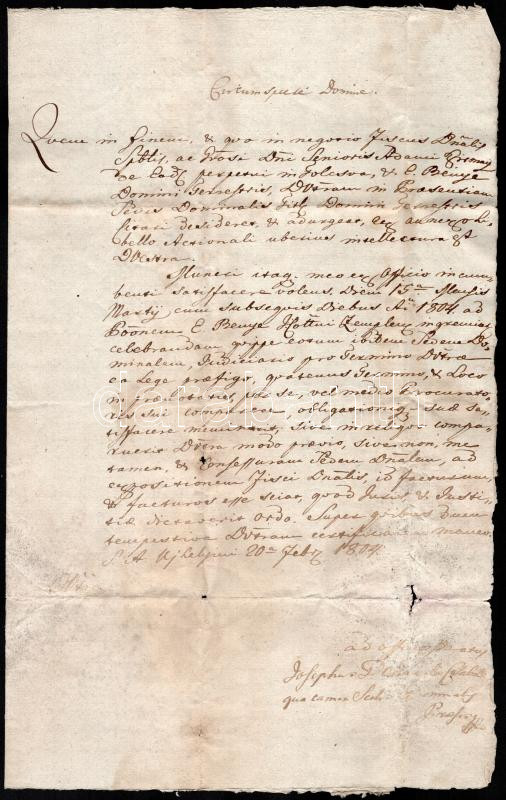 Circumspecte Domine.
Quem in finem, & quo in negotio Fiscus Dnalis
Spblis, ac Grosi Dni Senioris Adami
de Eadem perpetui in Tolcsva, & E. Benye
Domini Terrestris, Dvtram in Praesentiam
Sedis Dominalis Domini Terrestris
citari desideret, & adurgeat, ex annexo li-
bello Actionali uberius intellectura est
Dvestra.
Muneri itaq. meo ex Officio incum-
benti satisfacere volens, Diem 15am Mensis
Martij cum subsequis Diebus Ai 1804. ad
Possnem E. Benye Cottui Zemplen ingremiat
celebrandam quippe eotum ibidem Sedem Do-
minalem, Judiciaris pro Termino Dvtrae
ex Lege praefigo, quatenus Termino, & Loco
in praenotatis, per se, vel medio Procurato-
ris sui comparere, obligationiq. suae sa-
tisfacere meminerit, sive in reliquo compa-
ruerit Dvtra modo praevio, sive non, me
tamen, & Confessuram Sedem Dnalem, ad
expositionem Fisci Dnalis, id facturum,
& facturos esse sciat, quod Juris, & Justi-
tiae dictaverit ordo. Super quibus dum
tempestive Dvtram certificarem maneo.
S. A. Ujhelyini 20a Febr 1804.
ad officia paratus
Josephus
qua tamen Sedis Dominalis
Praeses